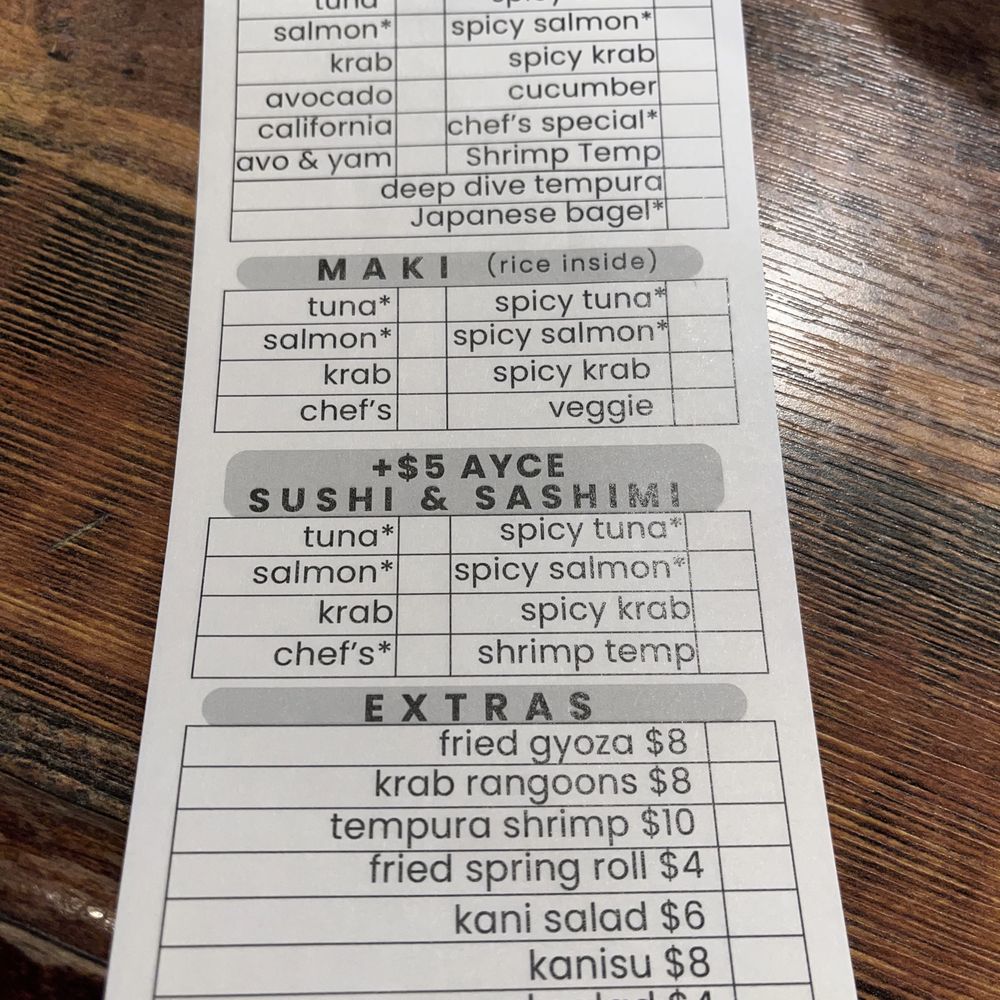 tuna
salmon* spicy salmon*
krab spicy krab
avocado cucumber
california chef's special*
avo & yam Shrimp Temp
deep dive tempura
Japanese bagel*
MAKI (rice inside)
tuna* spicy tuna*
salmon* spicy salmon*
krab spicy krab
chef's veggie
+$5 AYCE
SUSHI & SASHIMI
tuna* spicy tuna*
salmon* spicy salmon*
krab spicy krab
chef's* shrimp temp
EXTRAS
fried gyoza $8
krab rangoons $8
tempura shrimp $10
fried spring roll $4
kani salad $6
kanisu $8